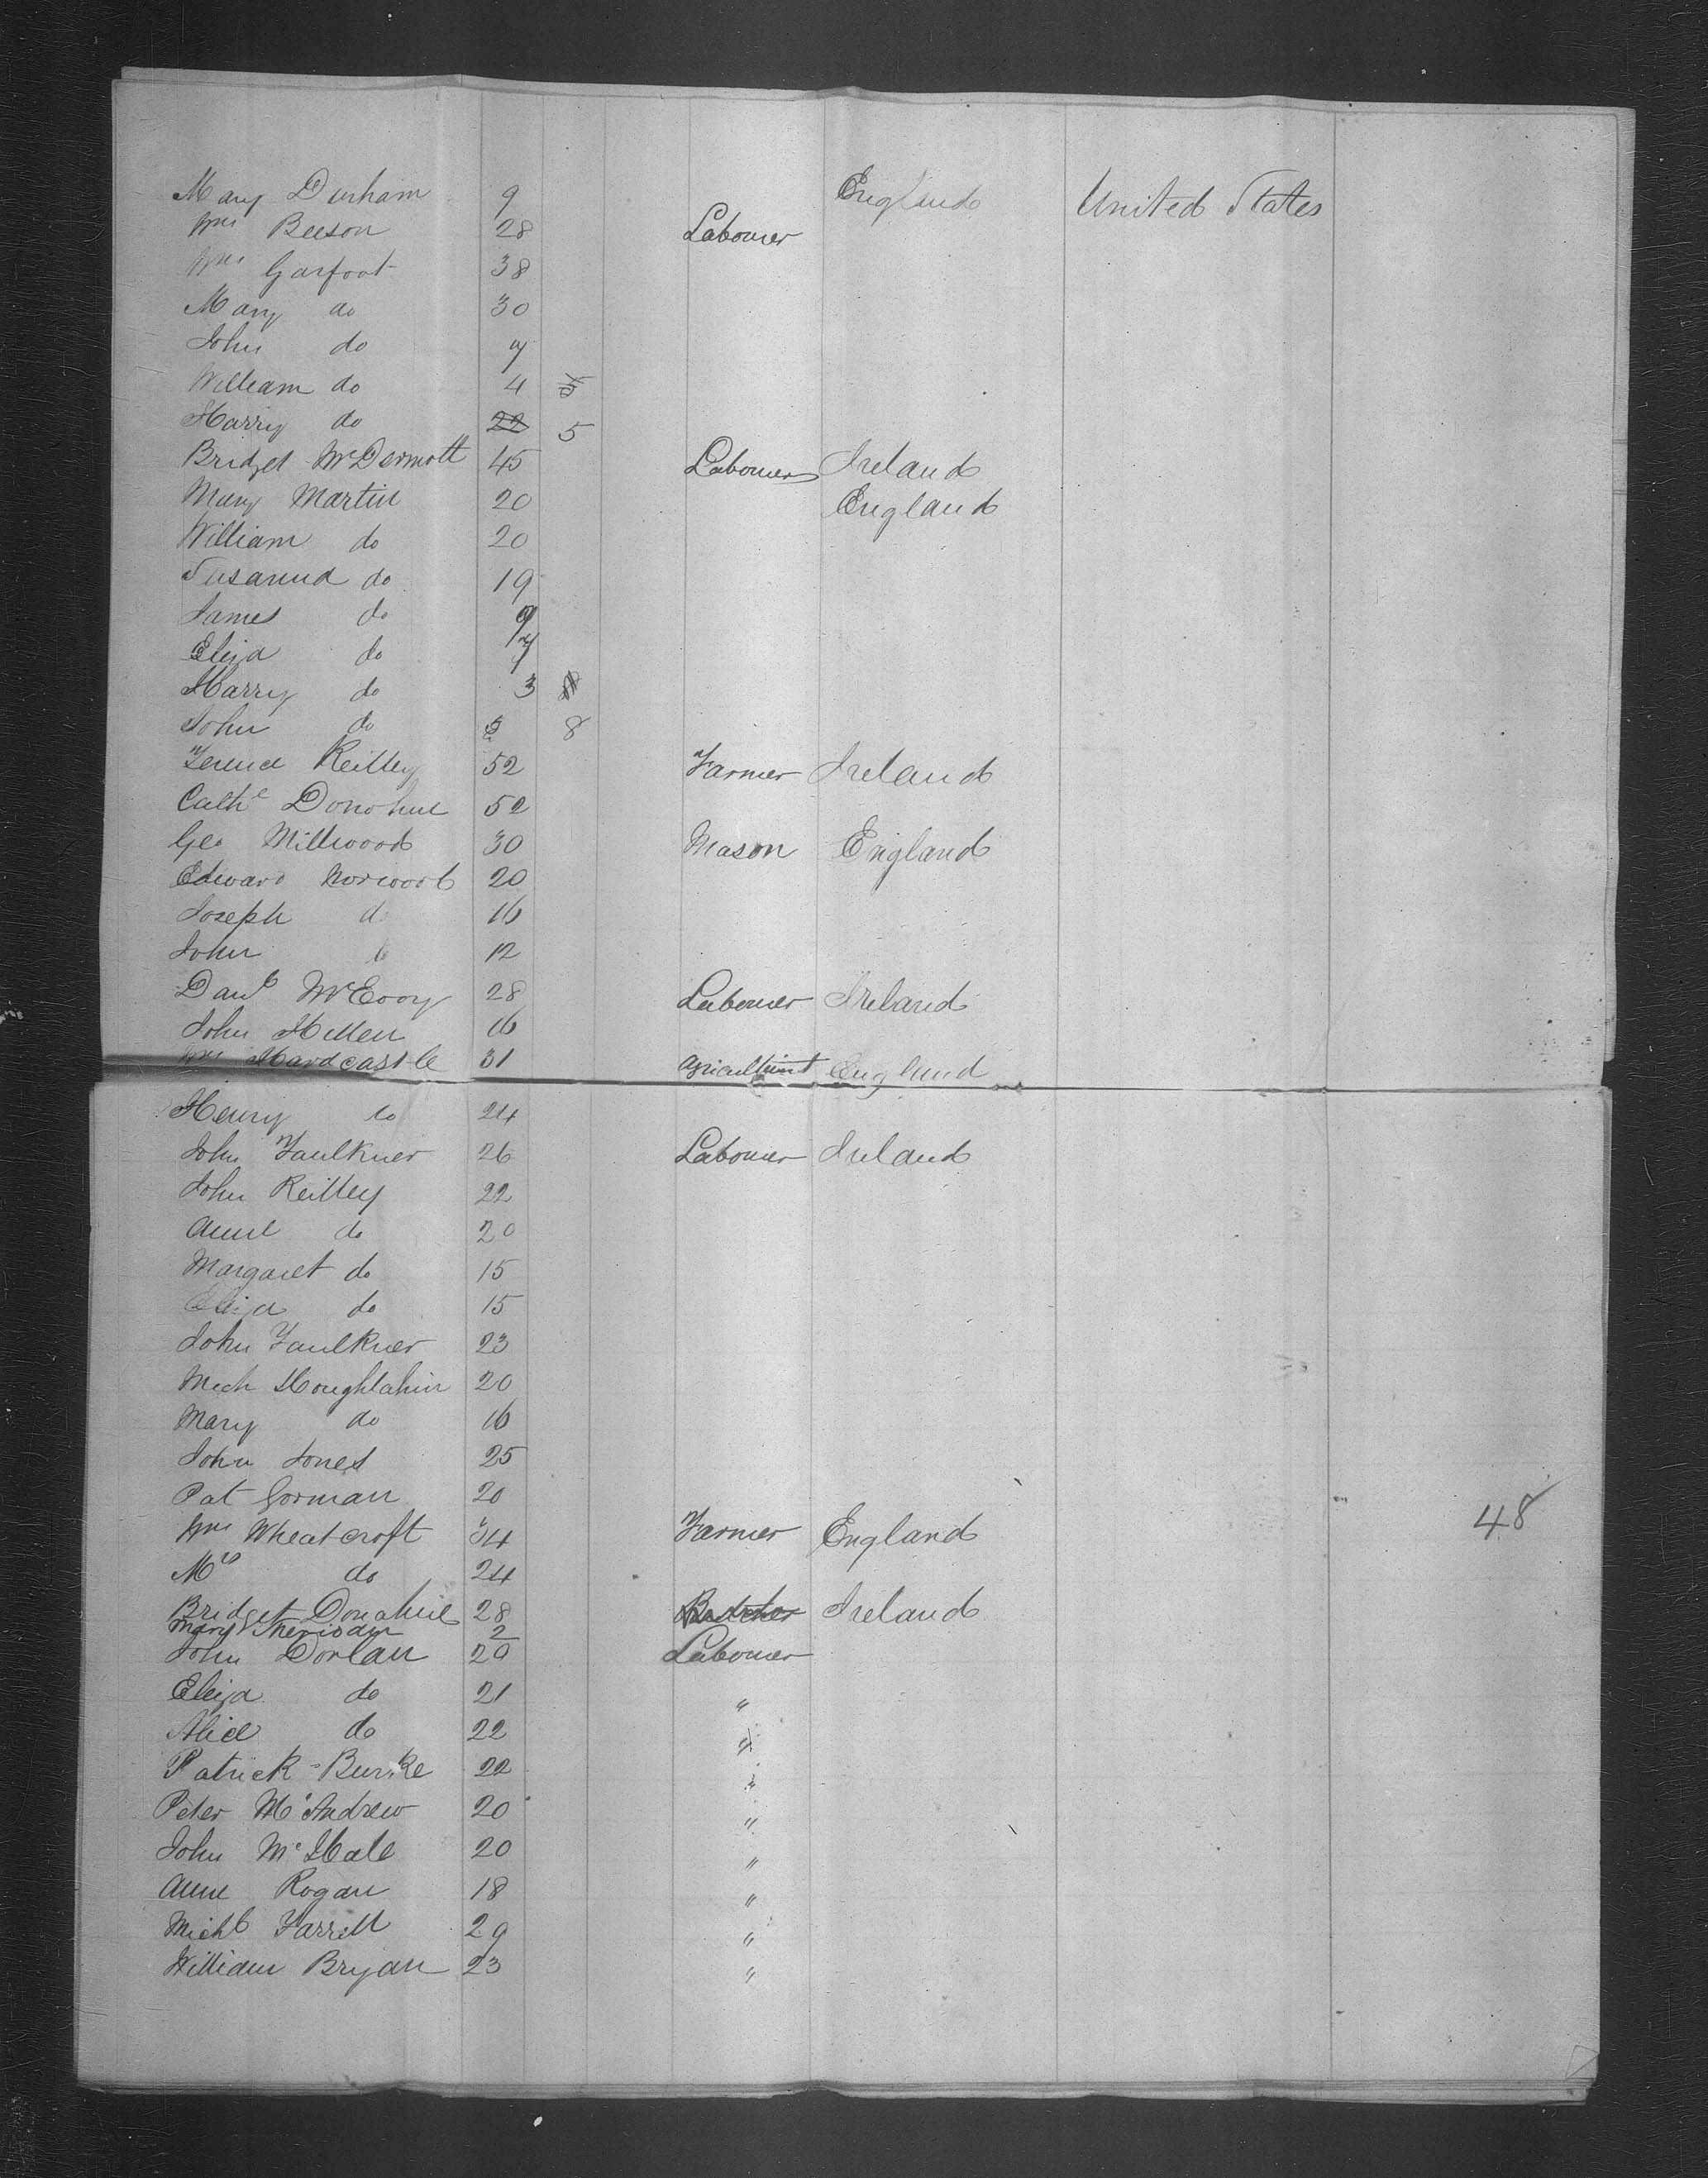 Mary Durham 9 England United States
Wm Beeson 28 Labourer
Wm Garfoot 38
Mary do 30
John do 7
William do 4 5
Harry do 22 5
Bridget McDermott 45 Labourer Ireland
Mary Martin 20 England
William do 20
Susanna do 19
James do 9
Eliza do 7
Harry do 3
John do 8
Terence Reilley 52 Farmer Ireland
Cathe Donohue 52
Geo Millwood 30 Mason England
Edward Norwood 20
Joseph do 16
John do 12
Danl McEvoy 28 Labourer Ireland
John Hillen 16
Wm Hardcastle 31 England
Henry do 24
John Faulkner 26 Labourer Ireland
John Reilley 22
Anne do 20
Margaret do 15
Eliza do 15
John Faulkner 23
Mich Houghlahin 20
Mary do 16
John Jones 25
Pat Gorman 20
Wm Wheatcroft 34 Farmer England 48
Mrs do 24
Bridget Donahue 28 Butcher Ireland
Mary Sheridan 2
John Dorlan 20 Labourer
Eliza do 21 "
Alice do 22 "
Patrick Burke 22 "
Peter McAndrew 20 "
John McHale 20 "
Anne Rogan 18 "
Michl Farrell 29 "
William Bryan 23 "